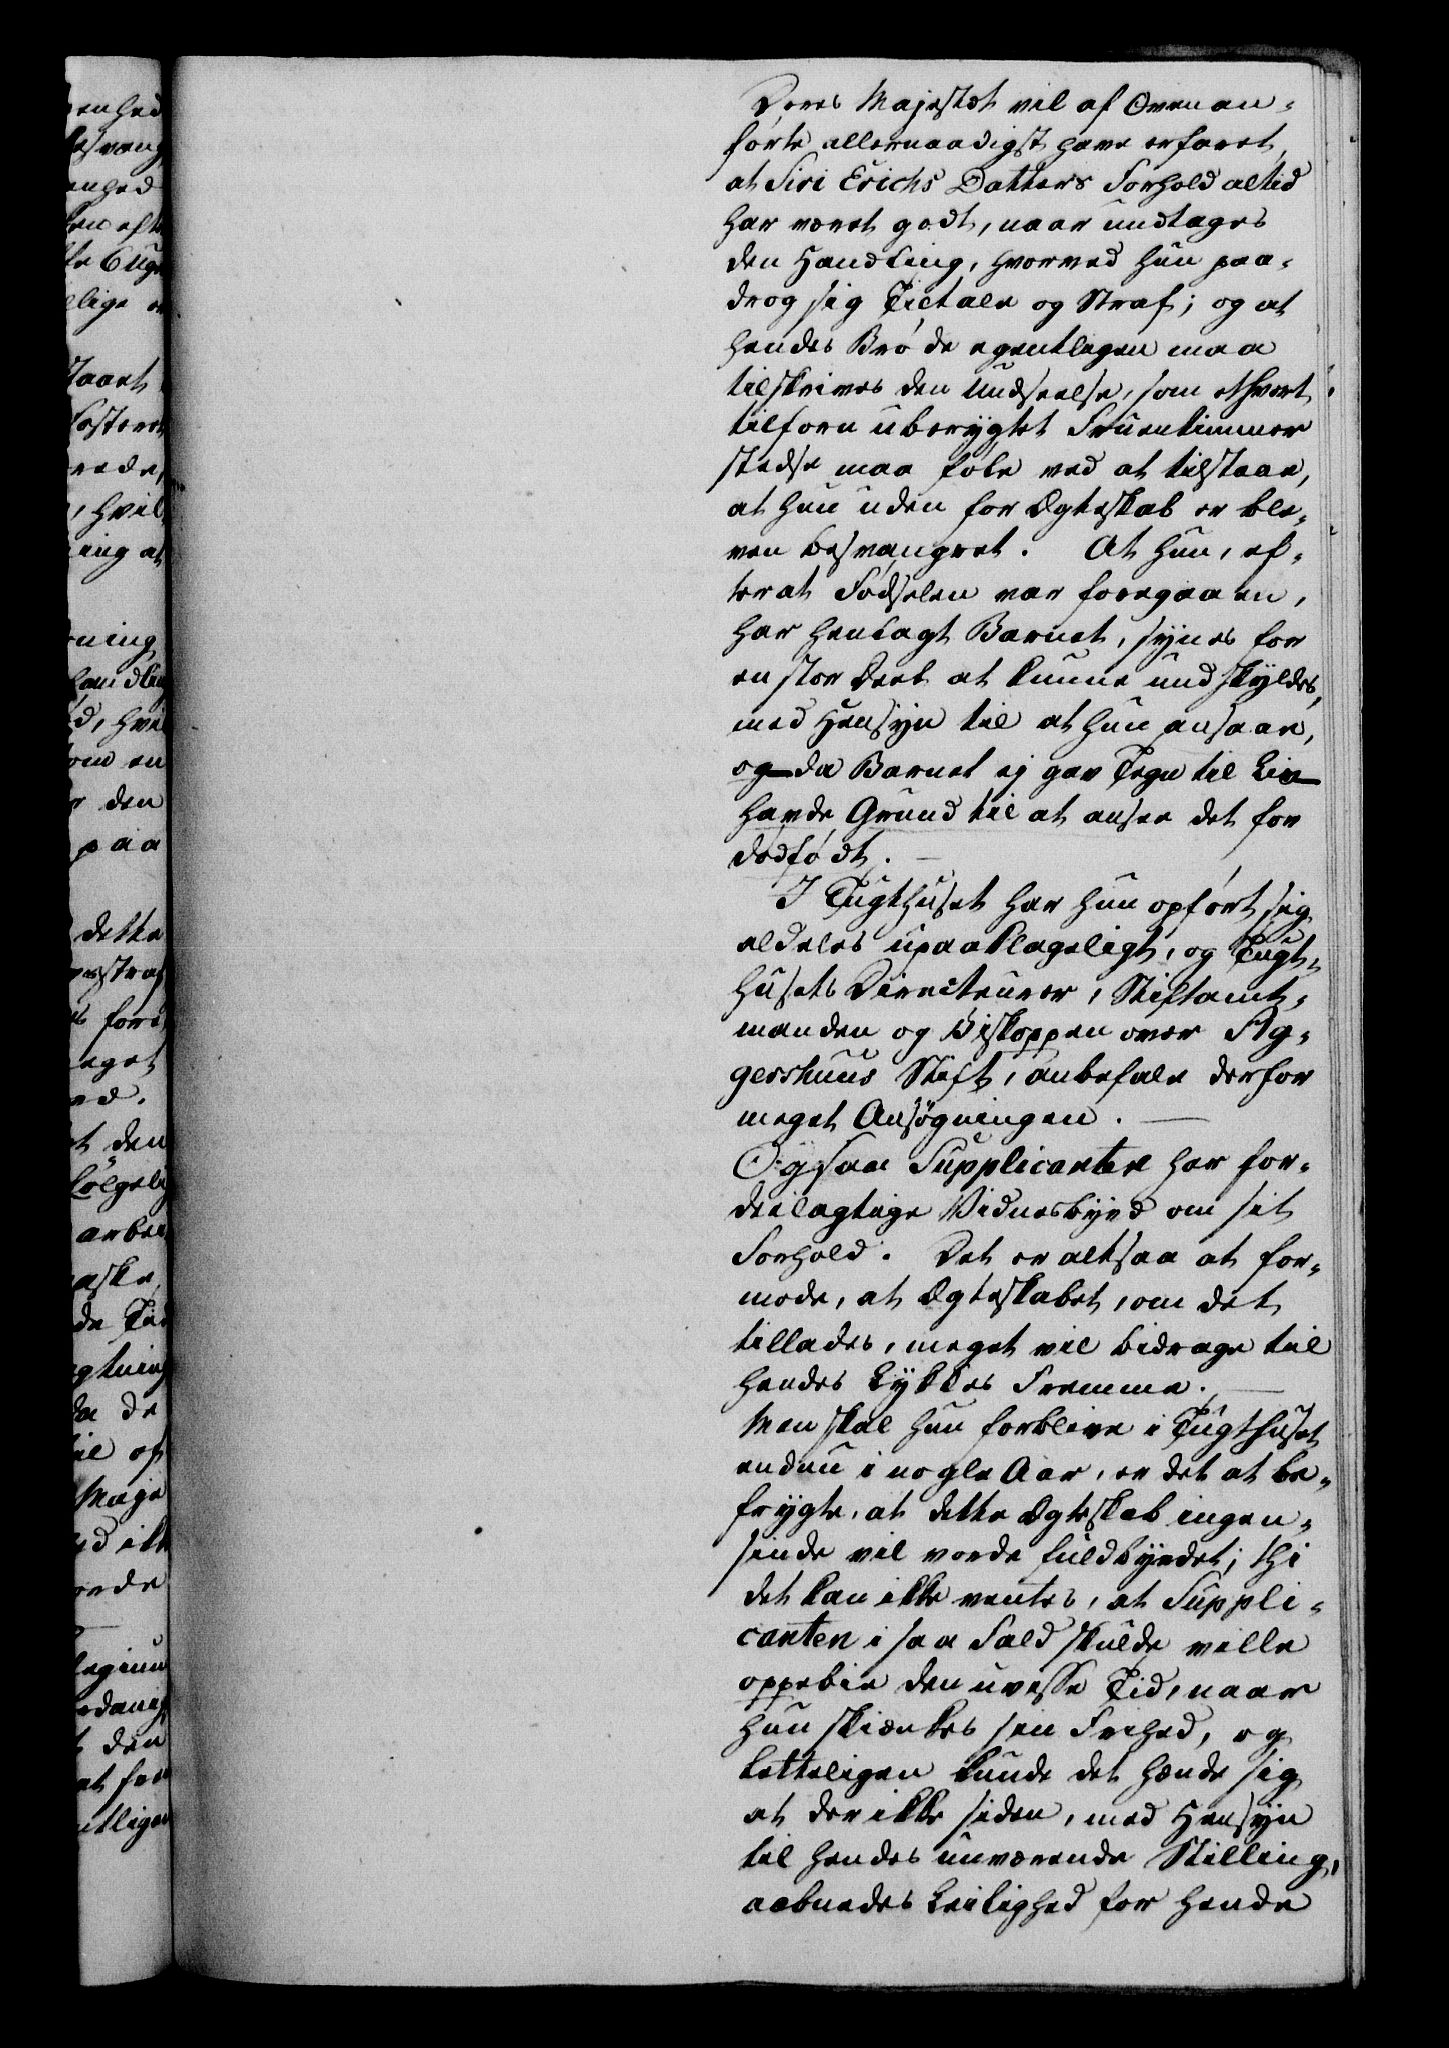 Deres Majestæt vil af Ovenan-
førte allernaadigst have erfaret,
at Siri Erichs Datters Forhold altid
har været godt, naar undtages
den Handling, hvorved hun paa-
drog sig Tiltale og Straf; og at
hendes Brøde egentligen maa
tilskrives den Undseelse, som ethvert
tilforn uberygtet Fruentimmer
stedse maa føle ved at tilstaae,
at hun uden for Ægteskab er ble-
ven besvangret. At hun, ef-
terat Fødselen var foregaaen,
har henlagt Barnet, synes for
en stor Deel at kunne undskyldes,
med Hensyn til at hun ansaae,
og da Barnet ej gav Tegn til Liv
havde Grund til at ansee det for
dødfødt. —
I Tugthuset har hun opført sig
aldeles upaaklageligt, og Tugt-
husets Directeurer, Stiftamt-
manden og Biskoppen over Ag-
gershuus Stift, anbefale derfor
meget Ansøgningen. —
Ogsaa Supplicanten har for-
deelagtige Vidnesbyrd om sit
Forhold. Det er altsaa at for-
mode, at Ægteskabet, om det
tillades, meget vil bidrage til
hendes Lykkes Fremme. —
Men skal hun forblive i Tugthuset
endnu i nogle Aar, er det at be-
frygte, at dette Ægteskab ingen-
sinde vil vorde fuldbyrdet; thi
det kan ikke ventes, at Suppli-
canten i saa Fald skulde ville
oppebie den uvisse Tid, naar
hun skiænkes sin Frihed, og
letteligen kunde det hænde sig
at der ikke siden, med Hensyn
til hendes nuværende Stilling,
aabnedes Leilighed for hende